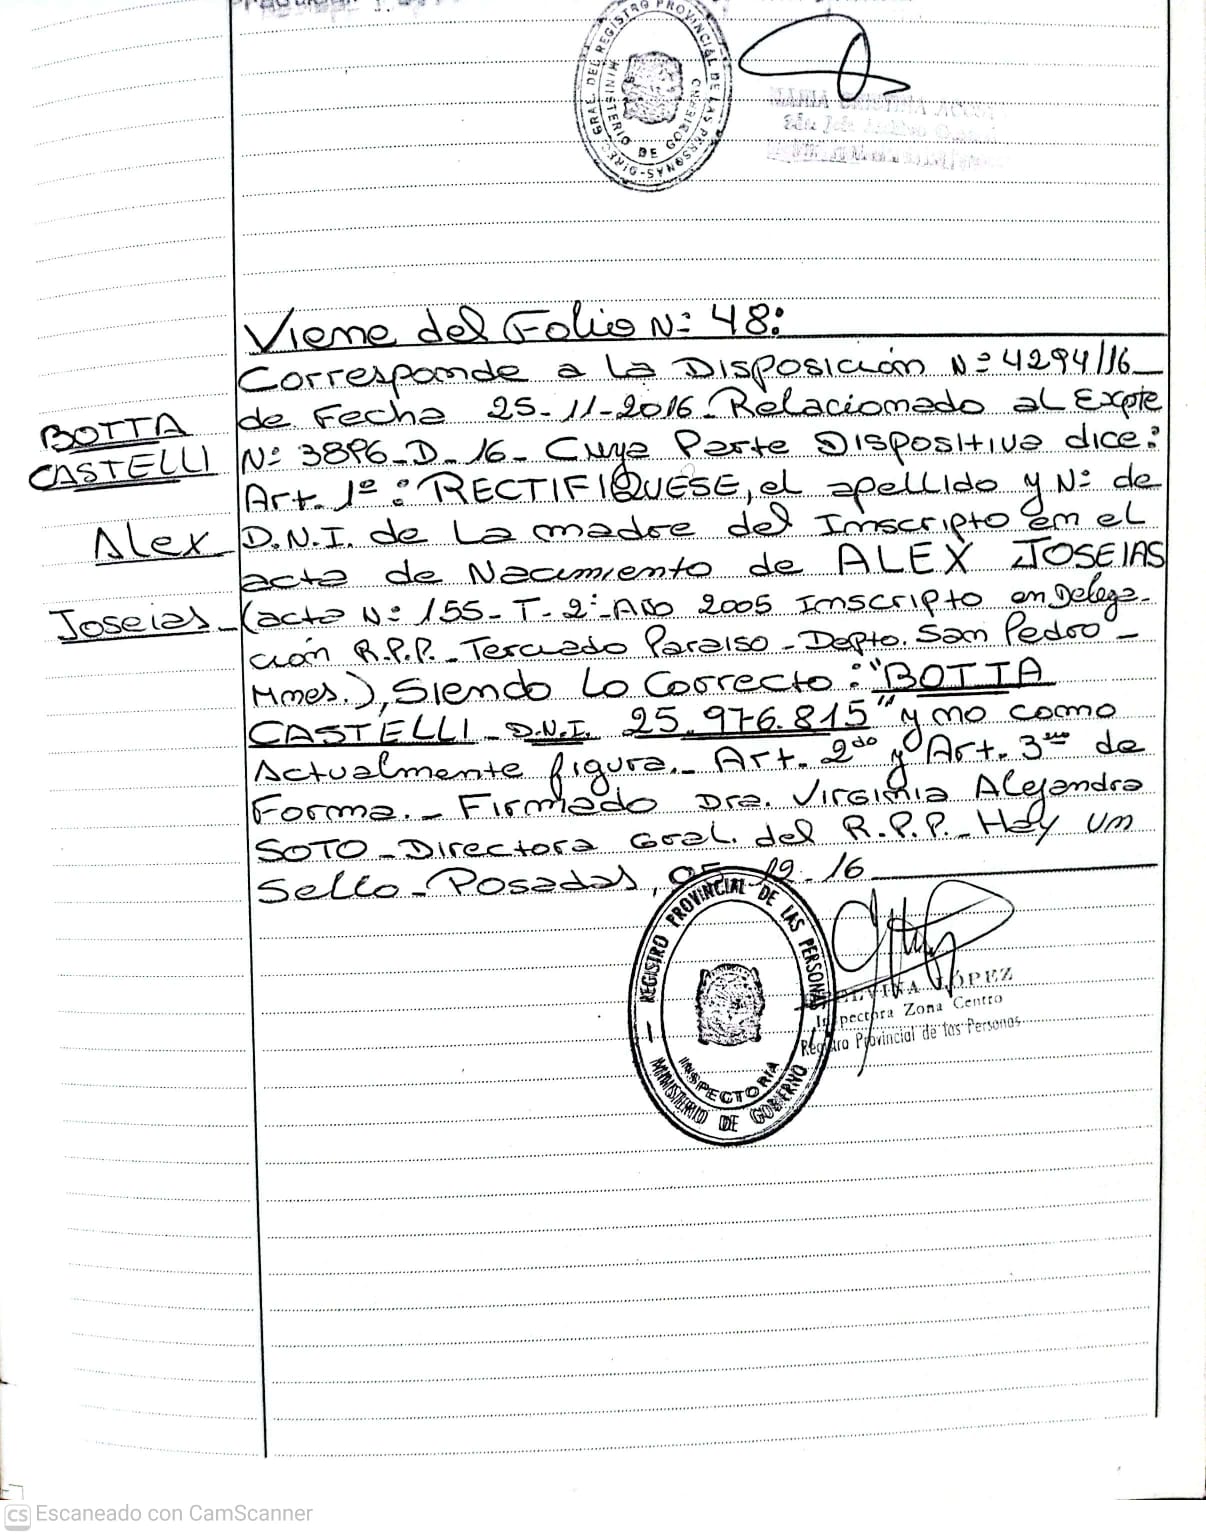 DIREC. GRAL. DEL REGISTRO PROVINCIAL DE LAS PERSONAS
MINISTERIO DE GOBIERNO
Viene del Folio Nº 48:
Corresponde a la Disposición Nº 4294/16
de Fecha 25-11-2016. Relacionado al Expte
BOTTA
CASTELLI
Nº 3896-D-16- Cuya Parte Dispositiva dice:
Art. 1º: RECTIFIQUESE, el apellido y Nº de
Alex
D.N.I. de La madre del Inscripto en el
acta de Nacimiento de ALEX JOSEIAS
Joseias
(acta Nº 155-T-2º-Año 2005 Inscripto en Delega-
ción R.P.P.-Terciado Paraiso-Depto. San Pedro-
Mnes.), Siendo Lo Correcto: "BOTTA
CASTELLI-D.N.I. 25.976.815" y no como
Actualmente figura.- Art. 2do y Art. 3ero de
Forma.- Firmado Dra. Virginia Alejandra
SOTO-Directora Gral. del R.P.P.-Hay un
Sello-Posadas, 05-12-16
REGISTRO PROVINCIAL DE LAS PERSONAS
INSPECTORIA
MINISTERIO DE GOBIERNO
LÓPEZ
Inspectora Zona Centro
Registro Provincial de las Personas
CS Escaneado con CamScanner